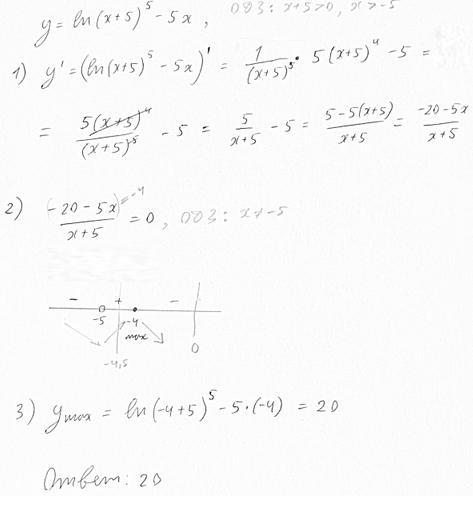 y = ln(x+5)^5 - 5x, ОДЗ: x+5>0, x>-5
1) y' = (ln(x+5)^5 - 5x)' = 1/(x+5)^5 · 5(x+5)^4 - 5 =
= 5(x+5)^4/(x+5)^5 - 5 = 5/(x+5) - 5 = (5-5(x+5))/(x+5) = (-20-5x)/(x+5)
2) (-20-5x)/(x+5) = 0, ОДЗ: x≠-5
=-4
- + -
-5 -4 0
max
-4,5
3) y max = ln(-4+5)^5 - 5·(-4) = 20
Ответ: 20